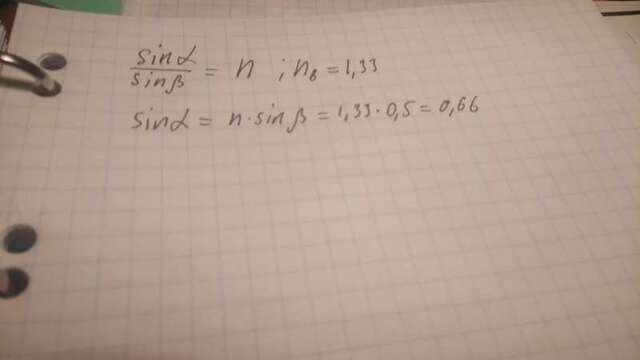 sinα/sinβ = n ; nв = 1,33
sinα = n · sinβ = 1,33 · 0,5 = 0,66